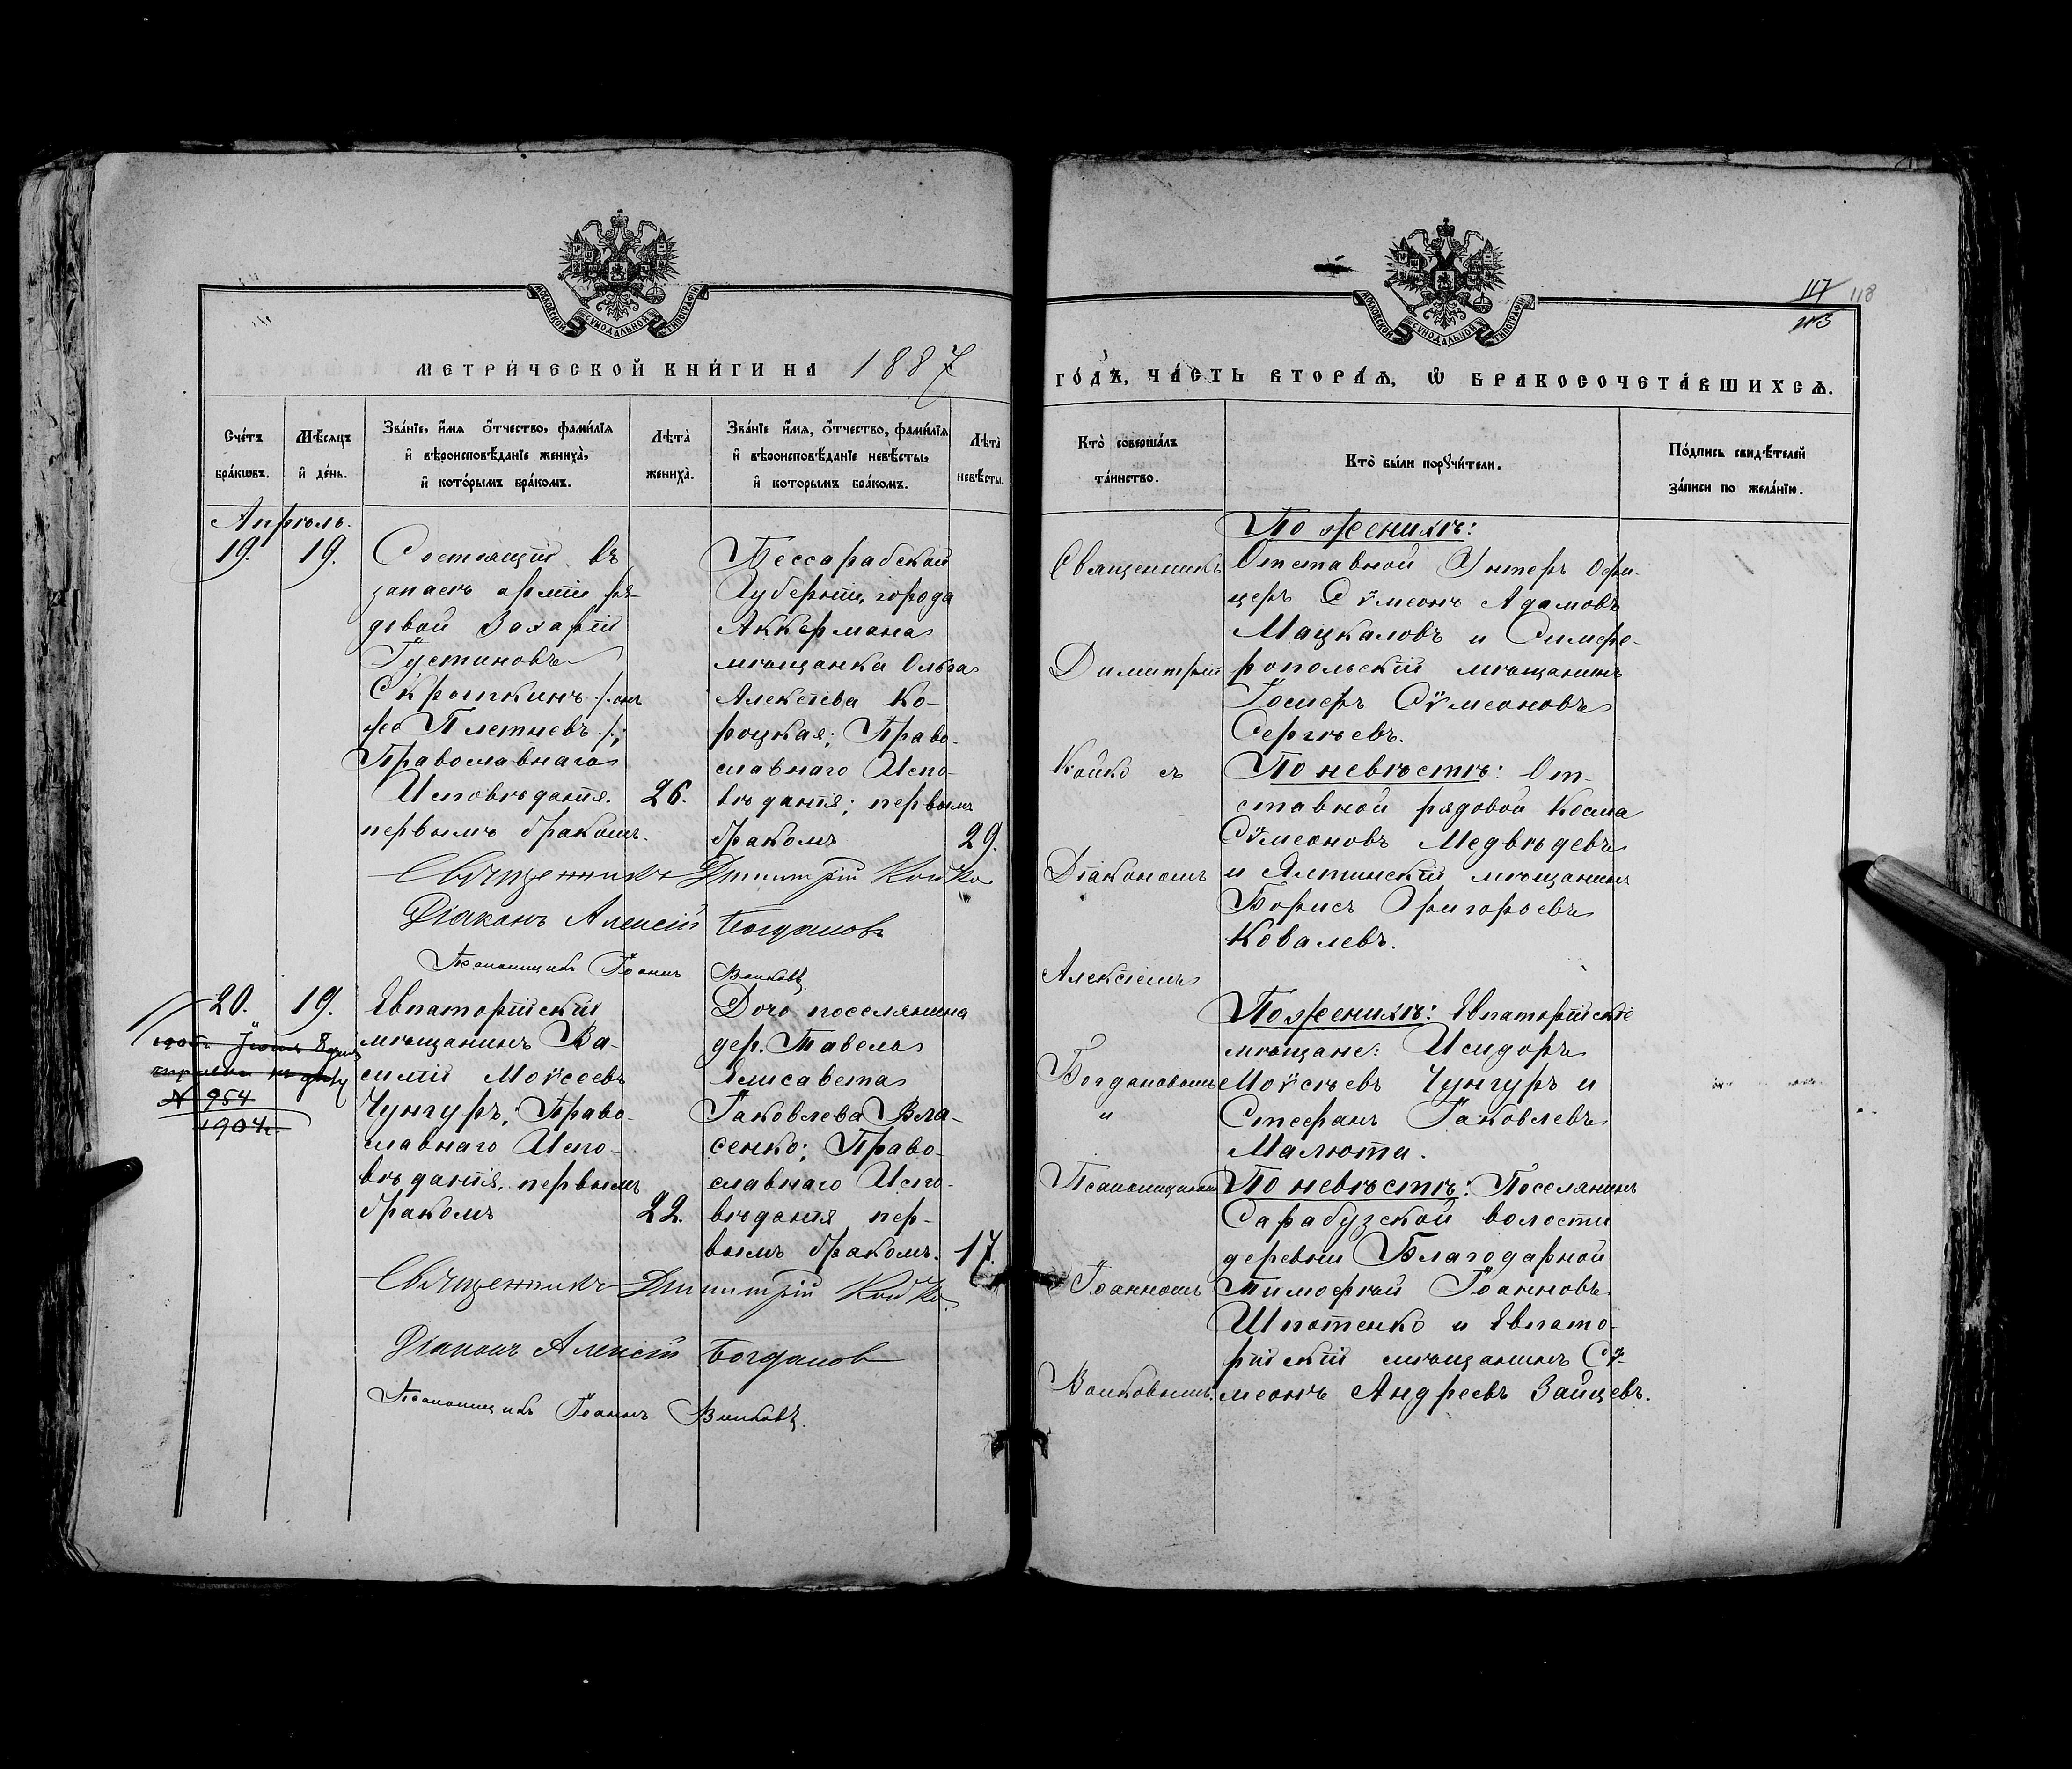 МОСКОВСКОЙ СѴНОДАЛЬНОЙ ТИПОГРАФІИ
МЕТРИ́ЧЕСКОЙ КНИ́ГИ НА 1887
Сче́тъ бра́кѡвъ.
Мѣ́сяцъ и҆ де́нь.
Зва́нїе, и҆́мя о҆́тчество, фами́лїя
и҆ вѣроисповѣ́данїе жениха̀,
и҆ кото́рымъ бра́комъ.
Лѣта̀ жениха̀.
Зва́нїе и҆́мя, о҆́тчество, фами́лїя
и҆ вѣроисповѣ́данїе невѣ́сты,
и҆ которымъ бра́комъ.
Лѣта̀ невѣ́сты.
Апрѣль.
19. 19.
Состоящій въ
запасѣ арміи ря-
довой Захарій
Густиновъ
Скрыпкинъ /: онъ
же Плетневъ :/;
Православнаго
Исповѣданія.
первымъ бракомъ.
26.
Бессарабской
Губерніи, города
Аккермана
мѣщанка Ольга
Алексіева Ко-
роцкая; Право-
славнаго Испо-
вѣданія; первымъ
бракомъ
29.
Священникъ Димитрій Койко
Діаконъ Алексій Богдановъ
Псаломщикъ Іоаннъ Волковъ
20. 19.
№ 954
1904 г.
Евпаторійскій
мѣщанинъ Ва-
силій Моѵсеевъ
Чунгуръ; Право-
славнаго Испо-
вѣданія, первымъ
бракомъ
22.
Дочь поселянина
дер. Тавель
Елисавета
Іаковлева Вла-
сенко; Право-
славнаго Испо-
вѣданія пер-
вымъ бракомъ.
17.
Священникъ Димитрій Койко.
Діаконъ Алексій Богдановъ
Псаломщикъ Іоаннъ Волковъ.
117 118
МОСКОВСКОЙ СѴНОДАЛЬНОЙ ТИПОГРАФІИ
ГО́ДЪ, ЧА́СТЬ ВТОРА́Ѧ, Ѡ҆ БРАКОСОЧЕТА́ВШИХСѦ.
Кто̀ соверша́лъ
та́инство.
Кто̀ бы́ли порꙋчи́тели.
По́дпись свидѣ́телей
за́писи по жела́нїю.
Священникъ
Димитрій
Койко съ
Діакономъ
Алексіемъ
Богдановымъ
"
Псаломщикомъ
Іоанномъ
Волковымъ.
По женихѣ:
Отставной Унтеръ Офи-
церъ Сѵмеонъ Адамовъ
Мацкаловъ и Симфе-
ропольскій мѣщанинъ
Іосифъ Сѵмеоновъ
Сергѣевъ.
По невѣстѣ: От-
ставной рядовой Косма
Сѵмеоновъ Медвѣдевъ
и Ялтинскій мѣщанинъ
Борисъ Григорьевъ
Ковалевъ.
По женихѣ: Евпаторійскіе
мѣщане: Исидоръ
Моѵсѣевъ Чунгуръ и
Стефанъ Іаковлевъ
Малюта.
По невѣстѣ: Поселянинъ
Сарабузской волости
деревни Благодарной
Тимофѣй Іоанновъ
Ипотенко и Евпато-
рійскій мѣщанинъ Сѵ-
меонъ Андреевъ Зайцевъ.